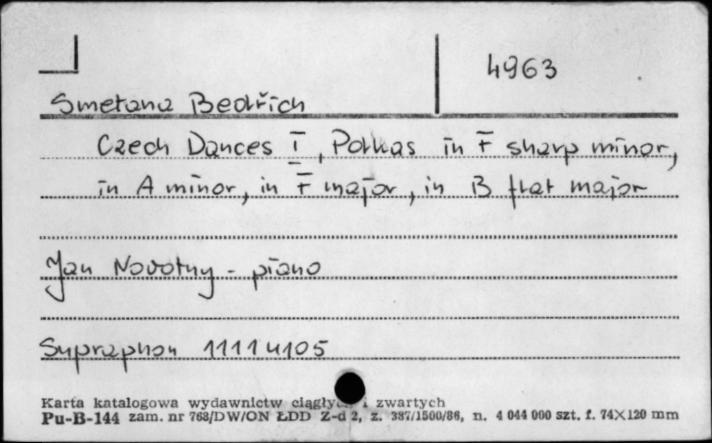 4963
Smetana Bedřich
Czech Dances I, Polkas in F sharp minor,
in A minor, in F major, in B flat major
Jan Novotny - piano
Supraphon 11114105
Karta katalogowa wydawnictw ciągłych i zwartych
Pu-B-144 zam. nr 768/DW/ON ŁDD Z-d 2, z. 387/1500/86, n. 4 044 000 szt. f. 74×120 mm